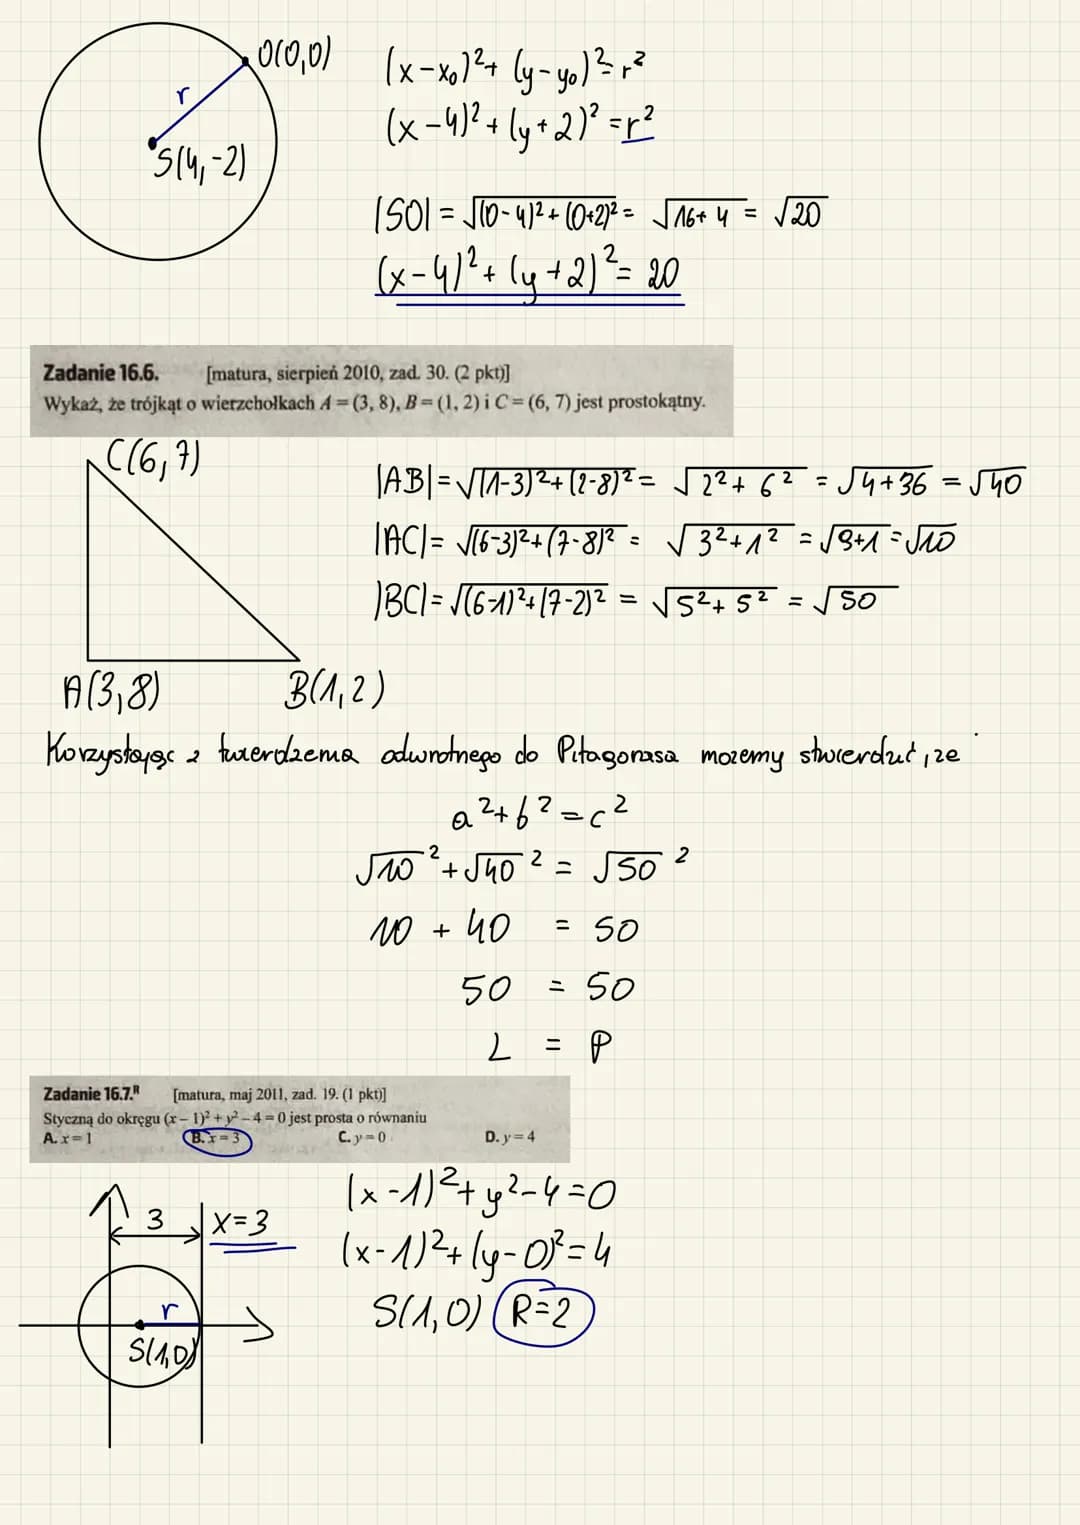 O(0,0)
r
S(4,-2)
(x-x₀)²+(y-y₀)²=r²
(x-4)²+(y+2)²=r²
|SO| = √(0-4)²+(0+2)² = √16+4 = √20
(x-4)²+(y+2)²=20
Zadanie 16.6. [matura, sierpień 2010, zad. 30. (2 pkt)]
Wykaż, że trójkąt o wierzchołkach A = (3, 8), B = (1, 2) i C = (6, 7) jest prostokątny.
C(6,7)
A(3,8)
B(1,2)
|AB| = √(1-3)²+(2-8)² = √2²+6² = √4+36 = √40
|AC| = √(6-3)²+(7-8)² = √3²+1² = √9+1 = √10
|BC| = √(6-1)²+(7-2)² = √5²+5² = √50
Korzystając z twierdzenia odwrotnego do Pitagorasa możemy stwierdzić, że
a²+b²=c²
√10²+√40² = √50²
10 + 40 = 50
50 = 50
L = P
Zadanie 16.7.ᴿ [matura, maj 2011, zad. 19. (1 pkt)]
Styczną do okręgu (x – 1)² + y² – 4 = 0 jest prosta o równaniu
A. x = 1 B. x = 3 C. y = 0 D. y = 4
3
x=3
r
S(1,0)
(x-1)²+y²-4=0
(x-1)²+(y-0)²=4
S(1,0) R=2